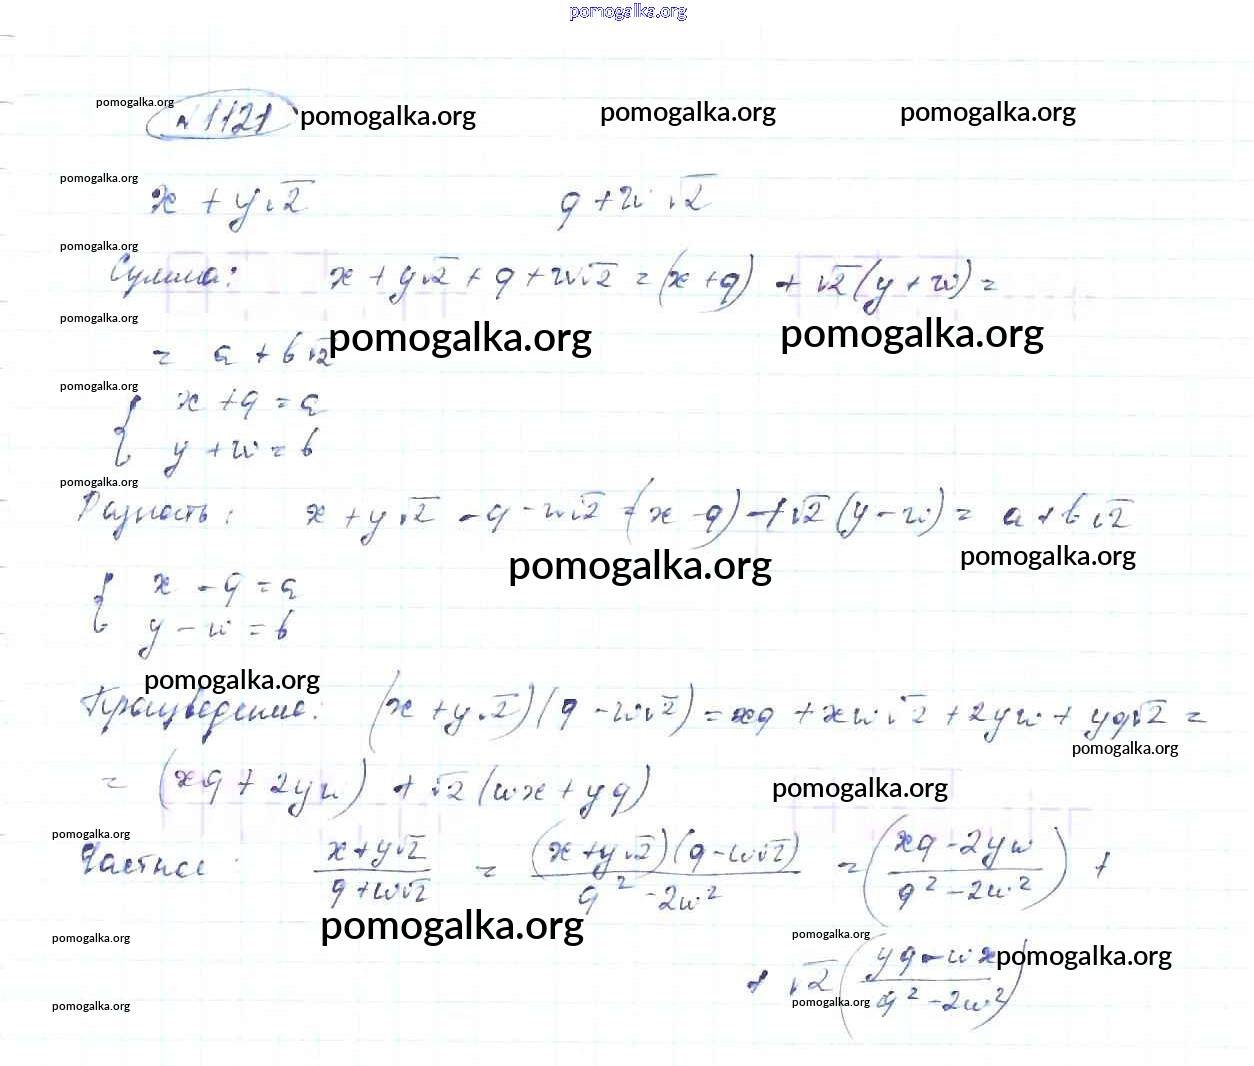 pomogalka.org
pomogalka.org № 1121 pomogalka.org pomogalka.org pomogalka.org
pomogalka.org
x + y√2 q + w√2
pomogalka.org
Сумма: x + y√2 + q + w√2 = (x + q) + √2 (y + w) =
pomogalka.org
= a + b√2 pomogalka.org pomogalka.org
pomogalka.org
{ x + q = a
y + w = b
pomogalka.org
Разность: x + y√2 - q - w√2 = (x - q) + √2 (y - w) = a + b√2
pomogalka.org pomogalka.org
{ x - q = a
y - w = b
pomogalka.org
Произведение: (x + y√2)(q - w√2) = xq + xw√2 + 2yw + yq√2 =
pomogalka.org
= (xq + 2yw) + √2 (wx + yq) pomogalka.org
pomogalka.org
Частное: (x + y√2)/(q + w√2) = ((x + y√2)(q - w√2))/(q² - 2w²) = ((xq - 2yw)/(q² - 2w²)) +
pomogalka.org
pomogalka.org pomogalka.org
+ √2 ((yq - wx)/(q² - 2w²)) pomogalka.org
pomogalka.org pomogalka.org